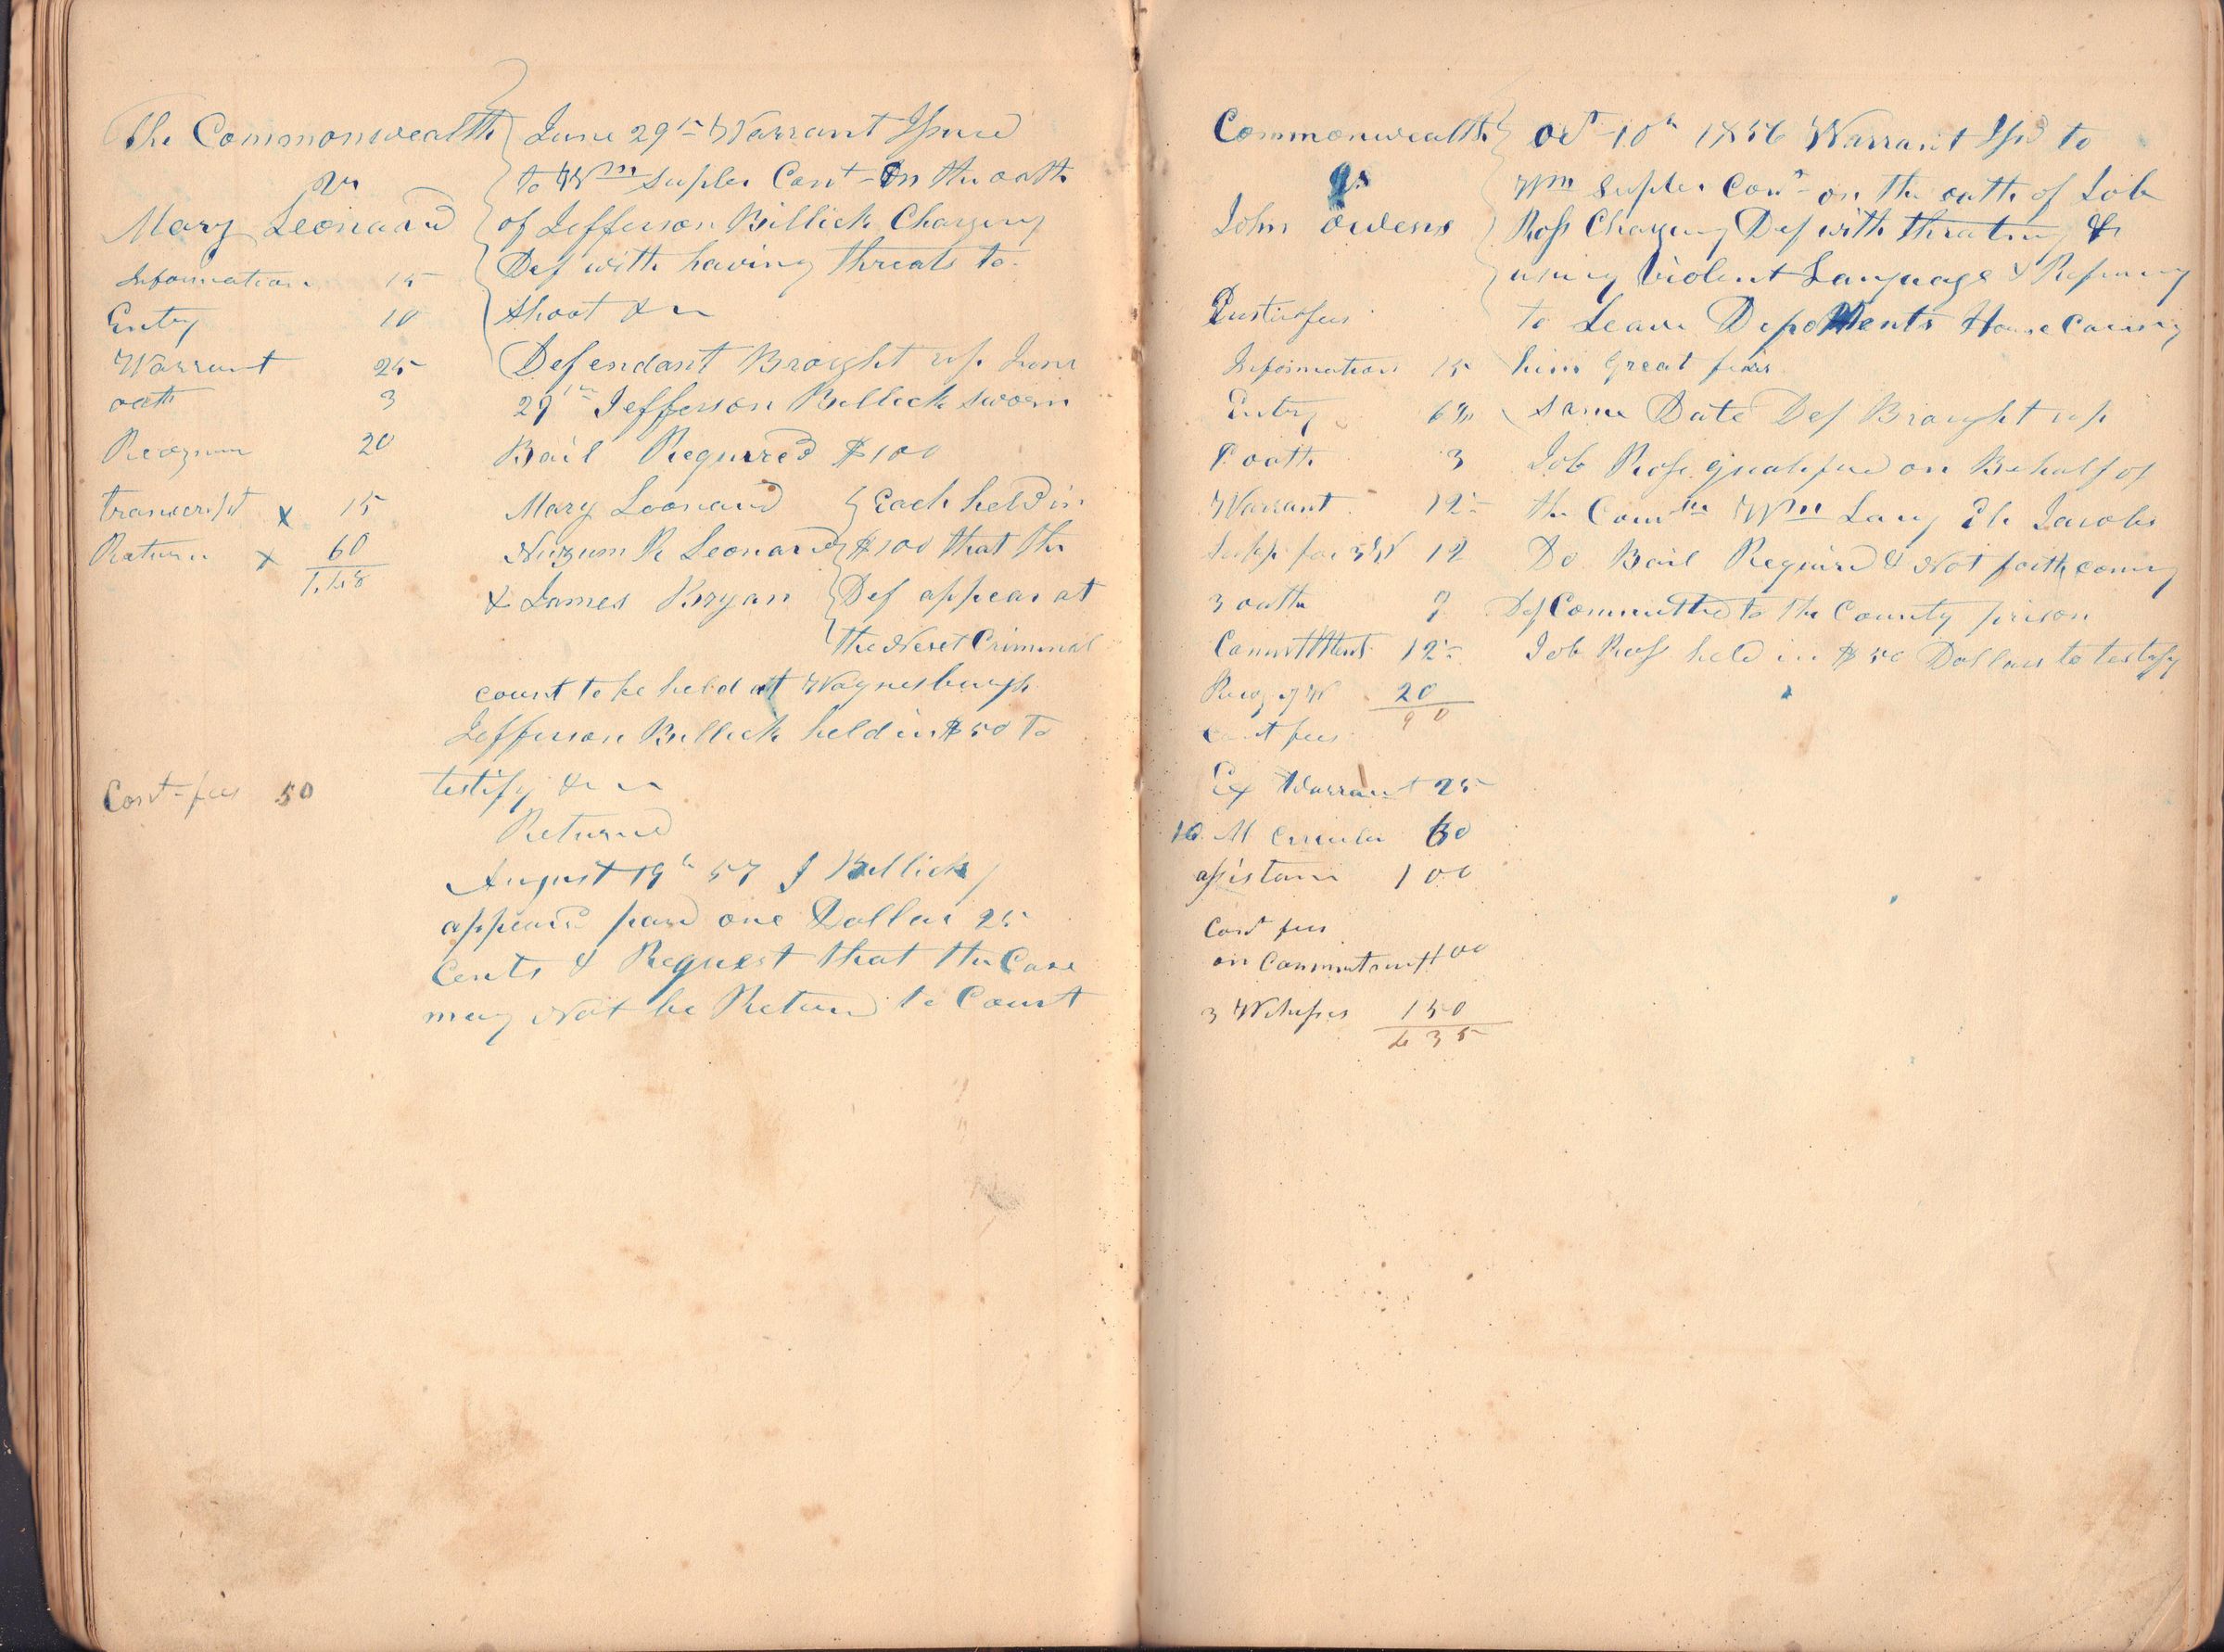 The Commonwealth
vs
Mary Leonard
Information 15
Entry 10
Warrant 25
oath 3
Recognu 20
transcript x 15
Return x 60
1.48
Const fees 50
June 29th Warrant Issued
to Wm Supler Const - On the oath
of Jefferson Billick Charging
Def with having threats to
shoot &c
Defendant Brought up June
29th Jefferson Billick sworn
Bail Requrred $100
Mary Leonard
Nuzum R Leonard
& James Bryan
Each held in
$100 that the
Def appear at
the Next Criminal
court to be held at Waynesburgh
Jefferson Billick held in $50 to
testify &c
Returned
August 19th 57 J Billick
appeard paid one Dollar 25
Cents & Request that the Case
may Not be Return to Court
Commonwealth
vs
John Owens
Justis fees
Information 15
Entry
oath 3
Warrant 12
Supp for 3 W 12
3 oaths 9
Committment 12
Recog of W 20
90
Const fees
Ex Warrant 25
10 M Circular 60
assistan 100
Const fees
on Commitment 100
3 Witnesses 150
435
Oct 10th 1856 Warrant Isd to
Wm Supler Const on the oath of Job
Ross Charging Def with thrating &
using violent Language & Refusing
to Leave Deponents House Causing
him great fear
same Date Def Brought up
Job Ross qualified on Behalf of
the Comth Wm Lang Eli Jacobs
Do Bail Required & Not forth coming
Def Committed to the County prison
Job Ross held in $50 Dollars to testify